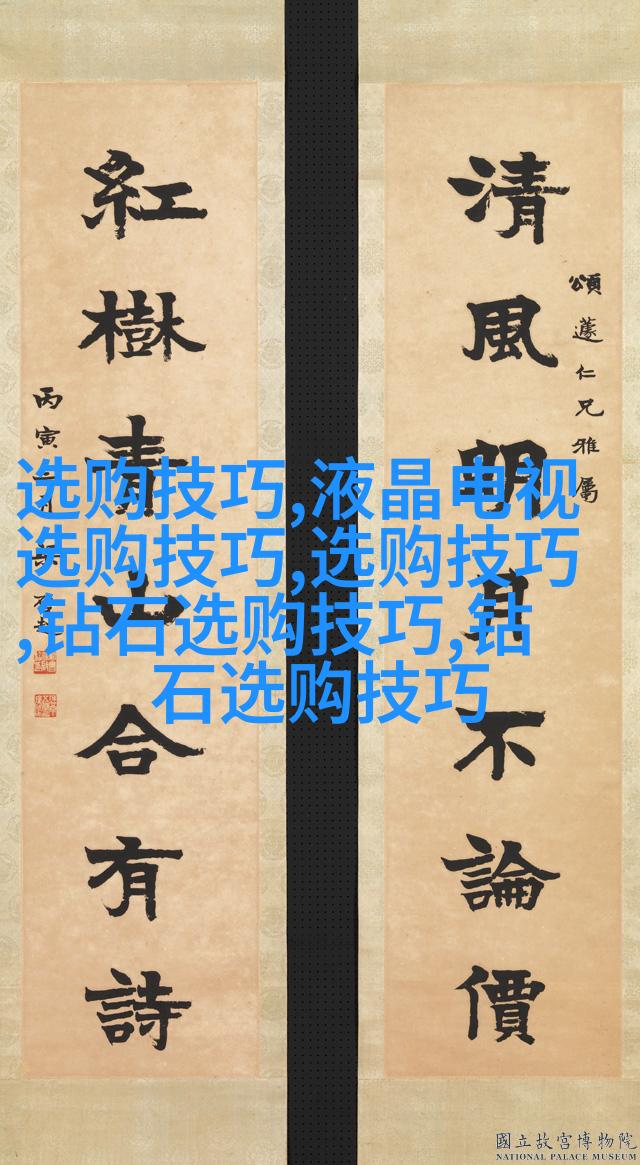 頌蘧仁兄雅屬
清風明月不論價
紅樹青山合有詩
丙寅
选购技巧,液晶电视
选购技巧,选购技巧
,钻石选购技巧,钻
石选购技巧
國立故宮博物院
NATIONAL PALACE MUSEUM